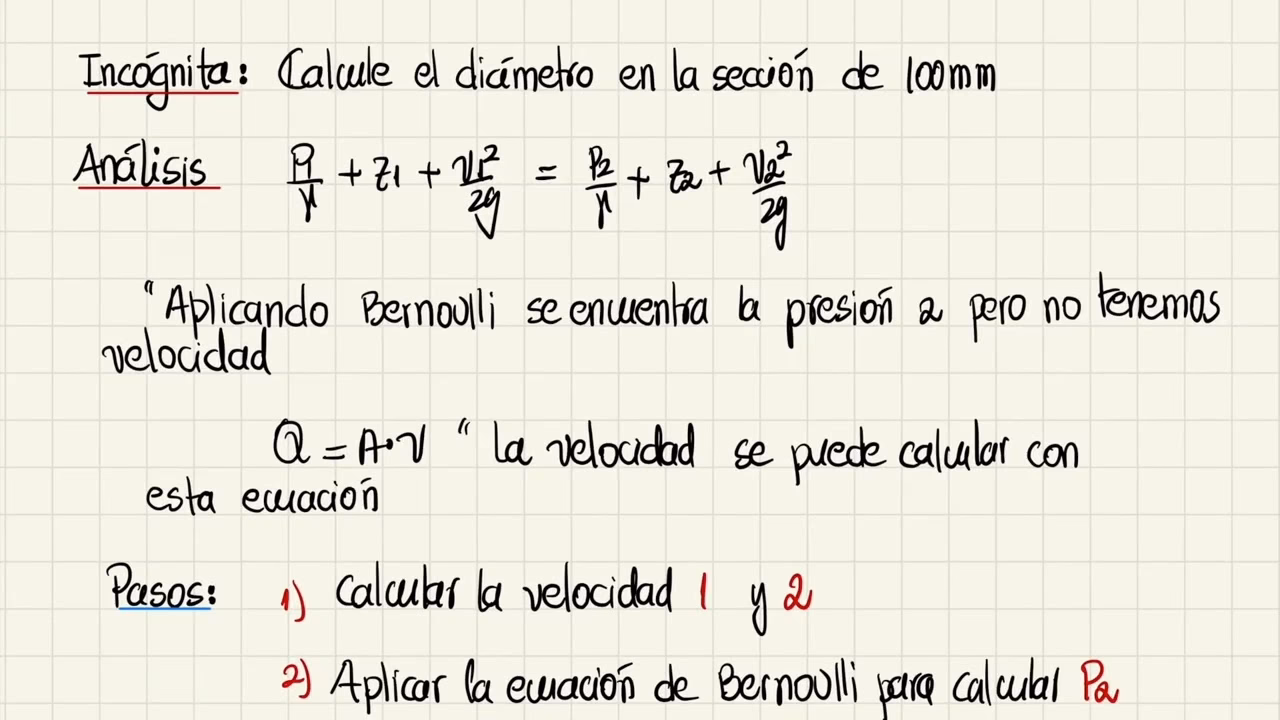 Incógnita: Calcule el diámetro en la sección de 100mm
Análisis P1/γ + z1 + v1²/2g = P2/γ + z2 + v2²/2g
"Aplicando Bernoulli se encuentra la presión 2 pero no tenemos
velocidad
Q = A·v " La velocidad se puede calcular con
esta ecuación
Pasos: 1) Calcular la velocidad 1 y 2
2) Aplicar la ecuación de Bernoulli para calcular P2